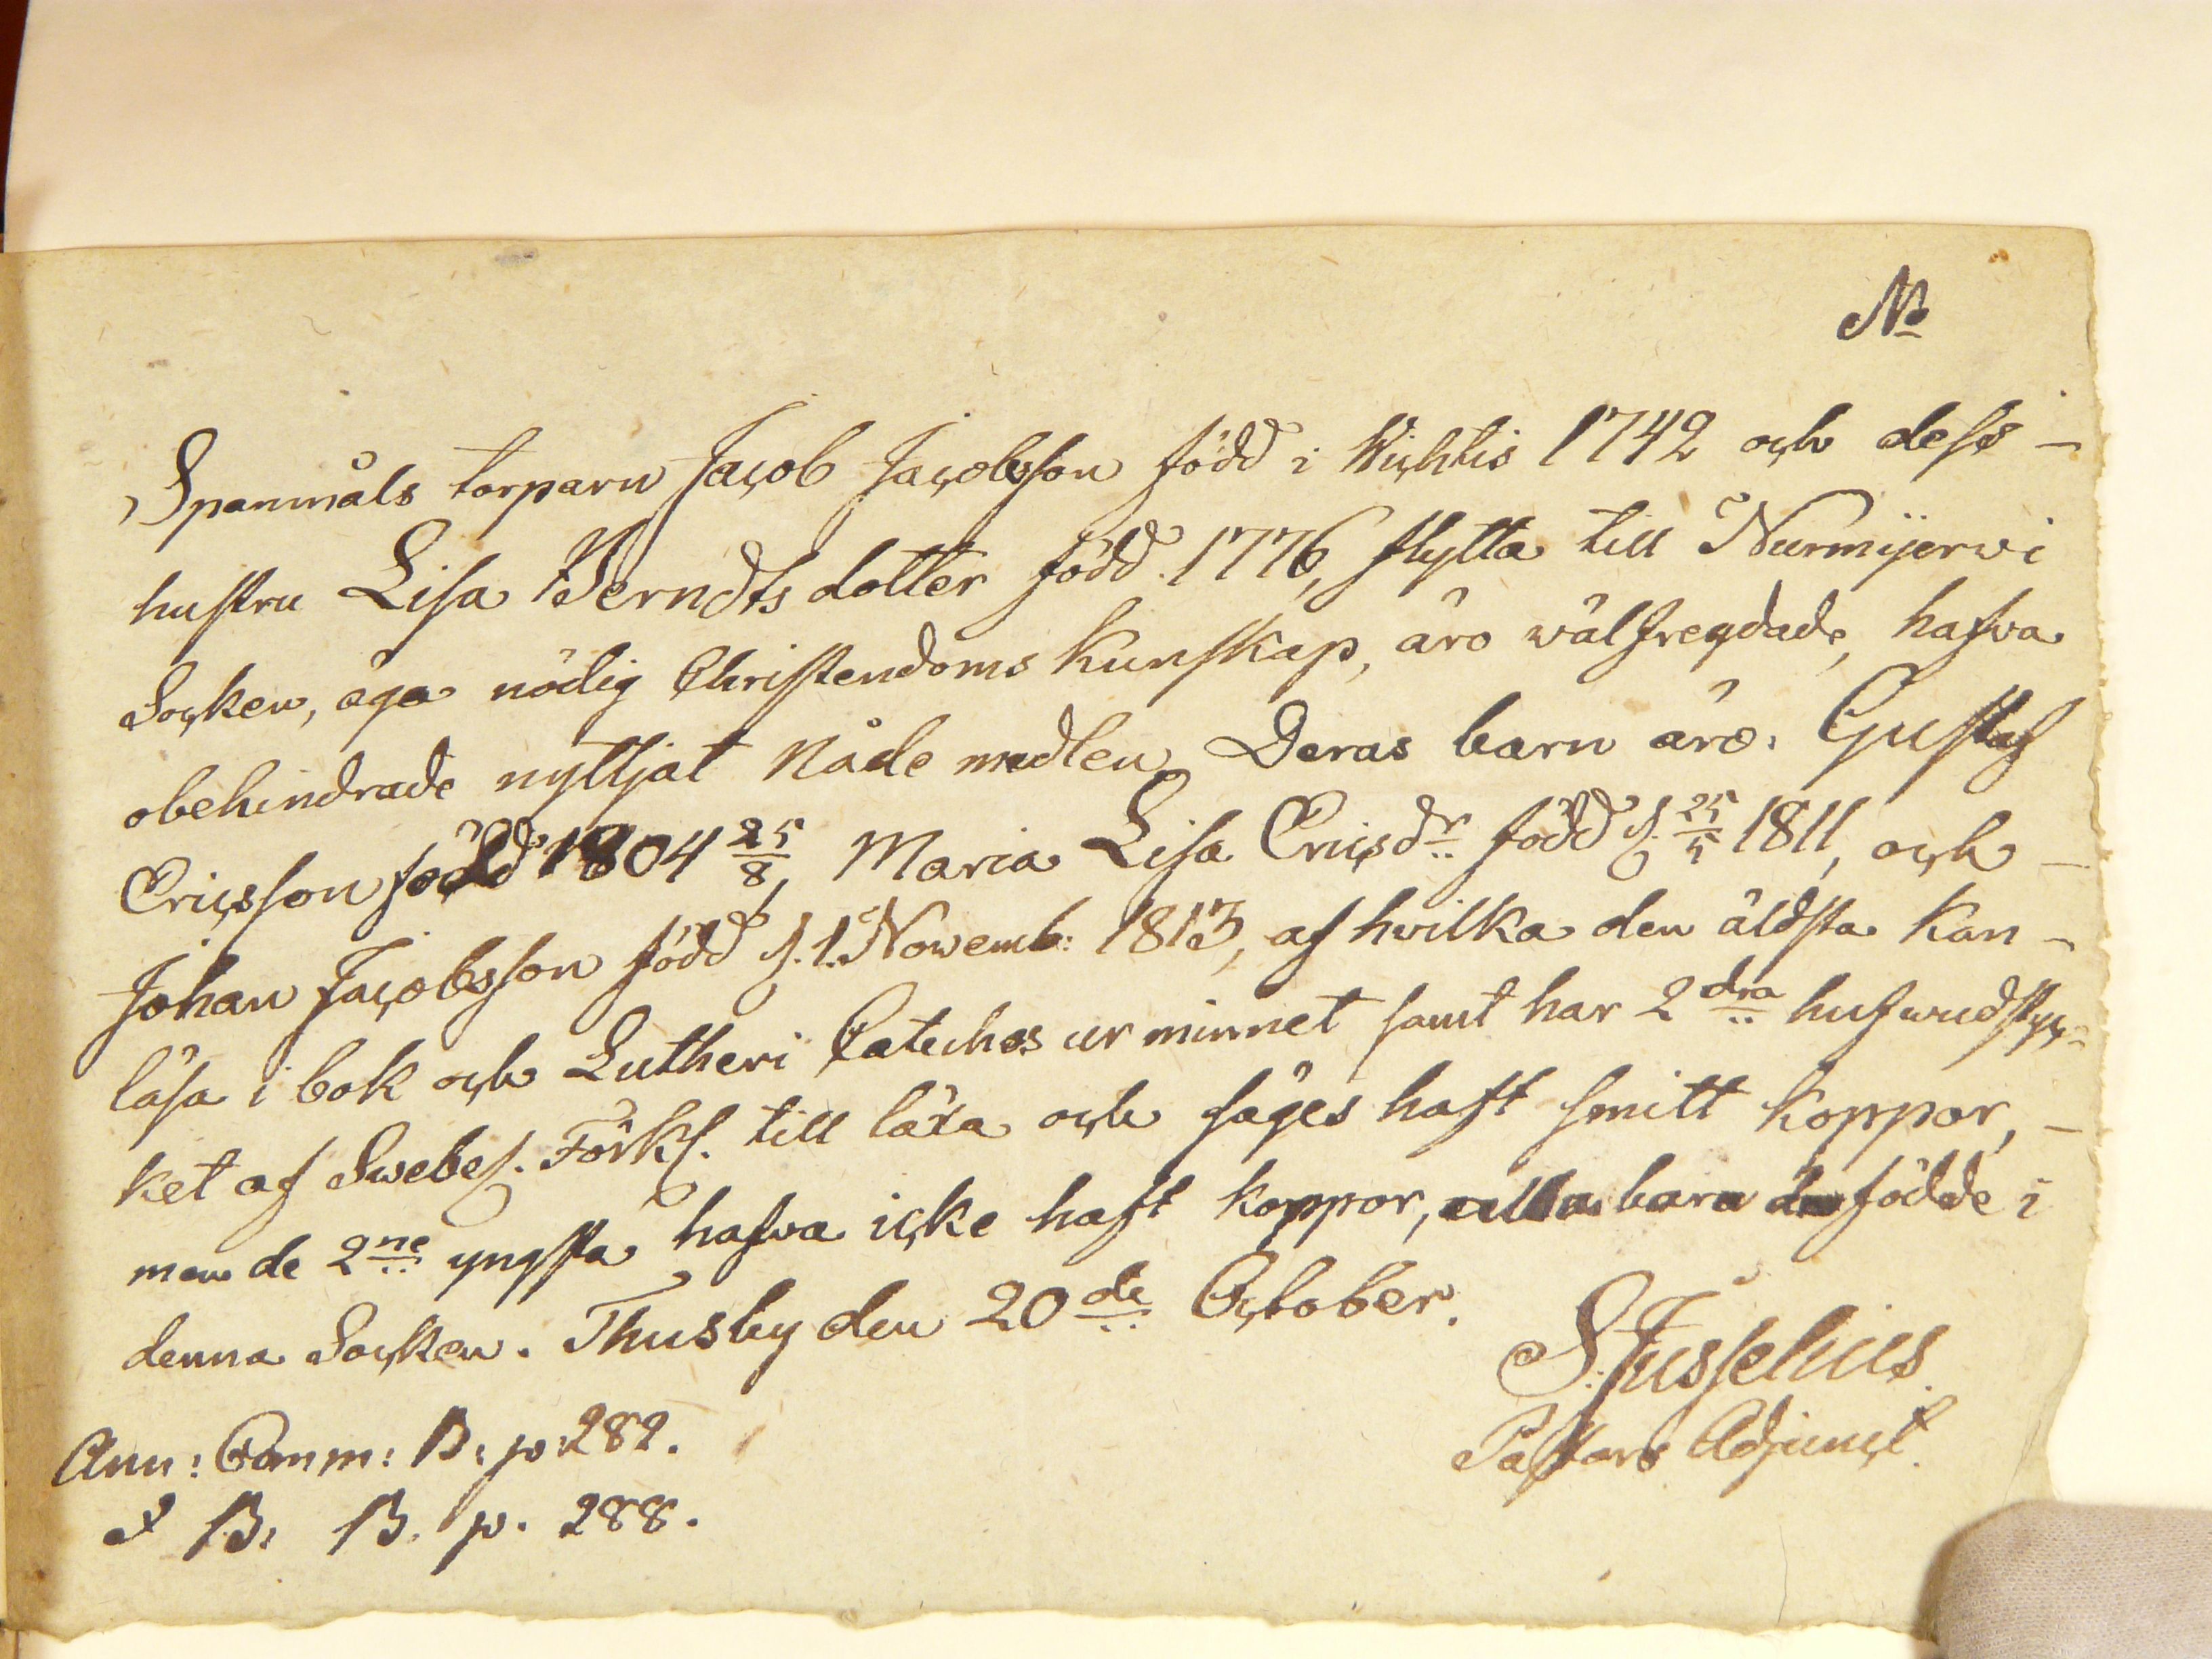 No
Spanmåls torparn Jacob Jacobsson född i Wichtis 1742 och dess –
hustru Lisa Berndts dotter född. 1776, flytta till Nurmijerwi
Socken, äga nödig Christendoms kunskap, äro wälfregdade, hafva
obehindrade nyttjat Nåde medlen. Deras barn äro. Gustaf
Ericsson född 1804 25/8, Maria Lisa Ericsdr född d. 25/5 1811, och –
Johan Jacobsson född d. 1. Novemb: 1813, af hvilka den äldsta kan –
läsa i bok och Lutheri Cateches ur minnet samt har 2dra hufwudstyc-
ket af Swebel. Förkl. till läxa och säges haft smitt koppor, –
men de 2ne yngsta hafva icke haft koppor, alla barn födde i
denna Socken. Thusby den 20de October.
S. Jusselius.
Pastors Adjunct.
Ann: Comm: B: p. 282.
B: B. p. 288.